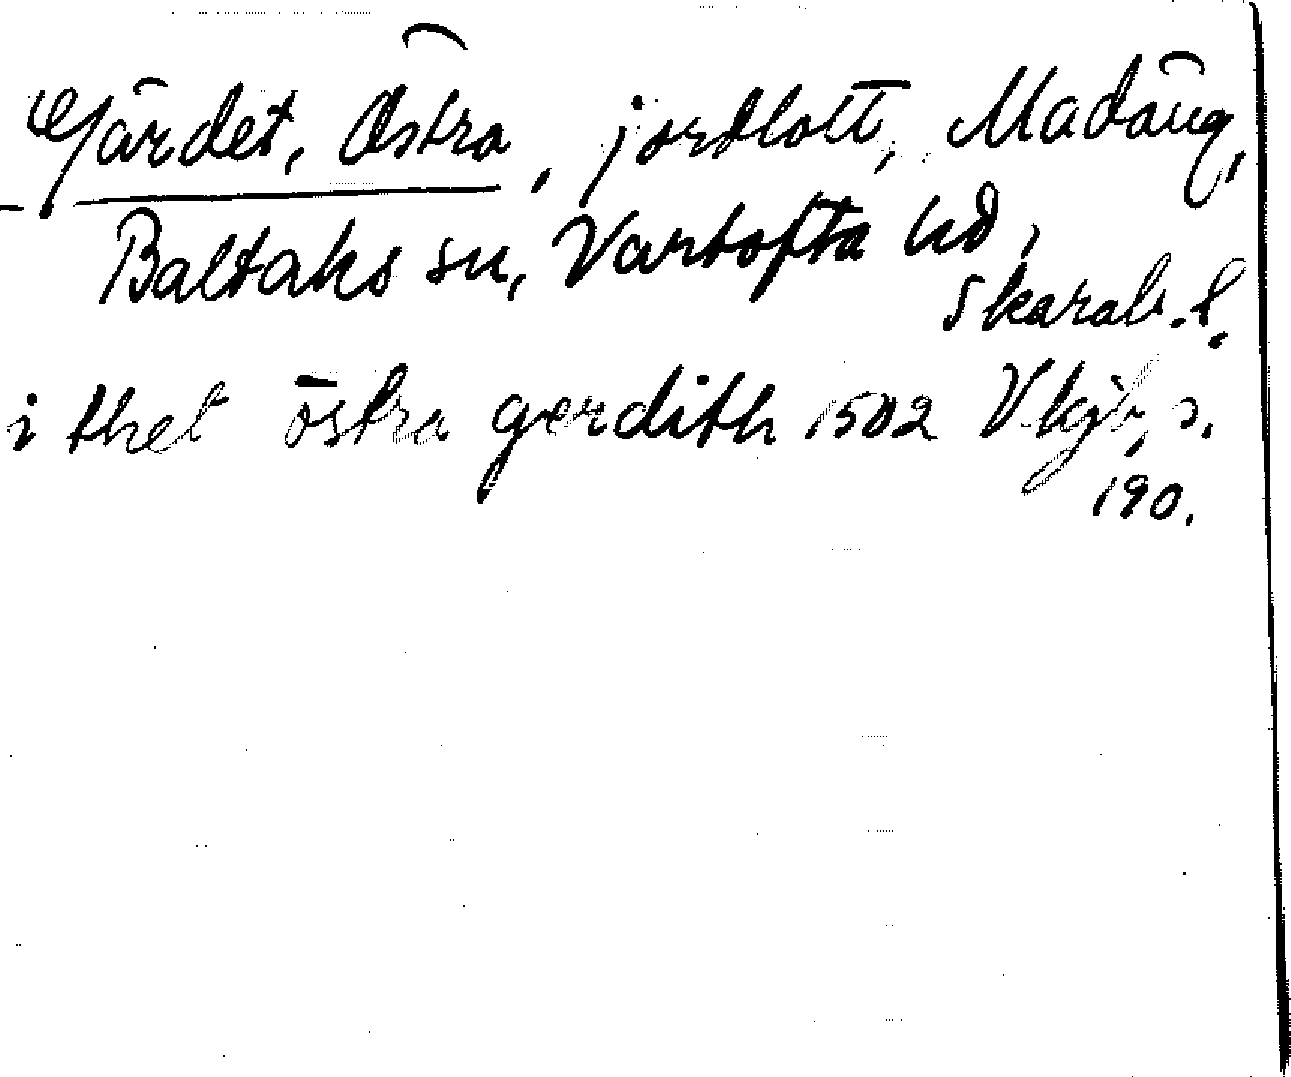 Gärdet, Östra, jordlott, Madäng,
Baltaks sn, Vartofta hd,
Skarab. l.
i thet östra gerdith 1502 Vkjb, s.
190.